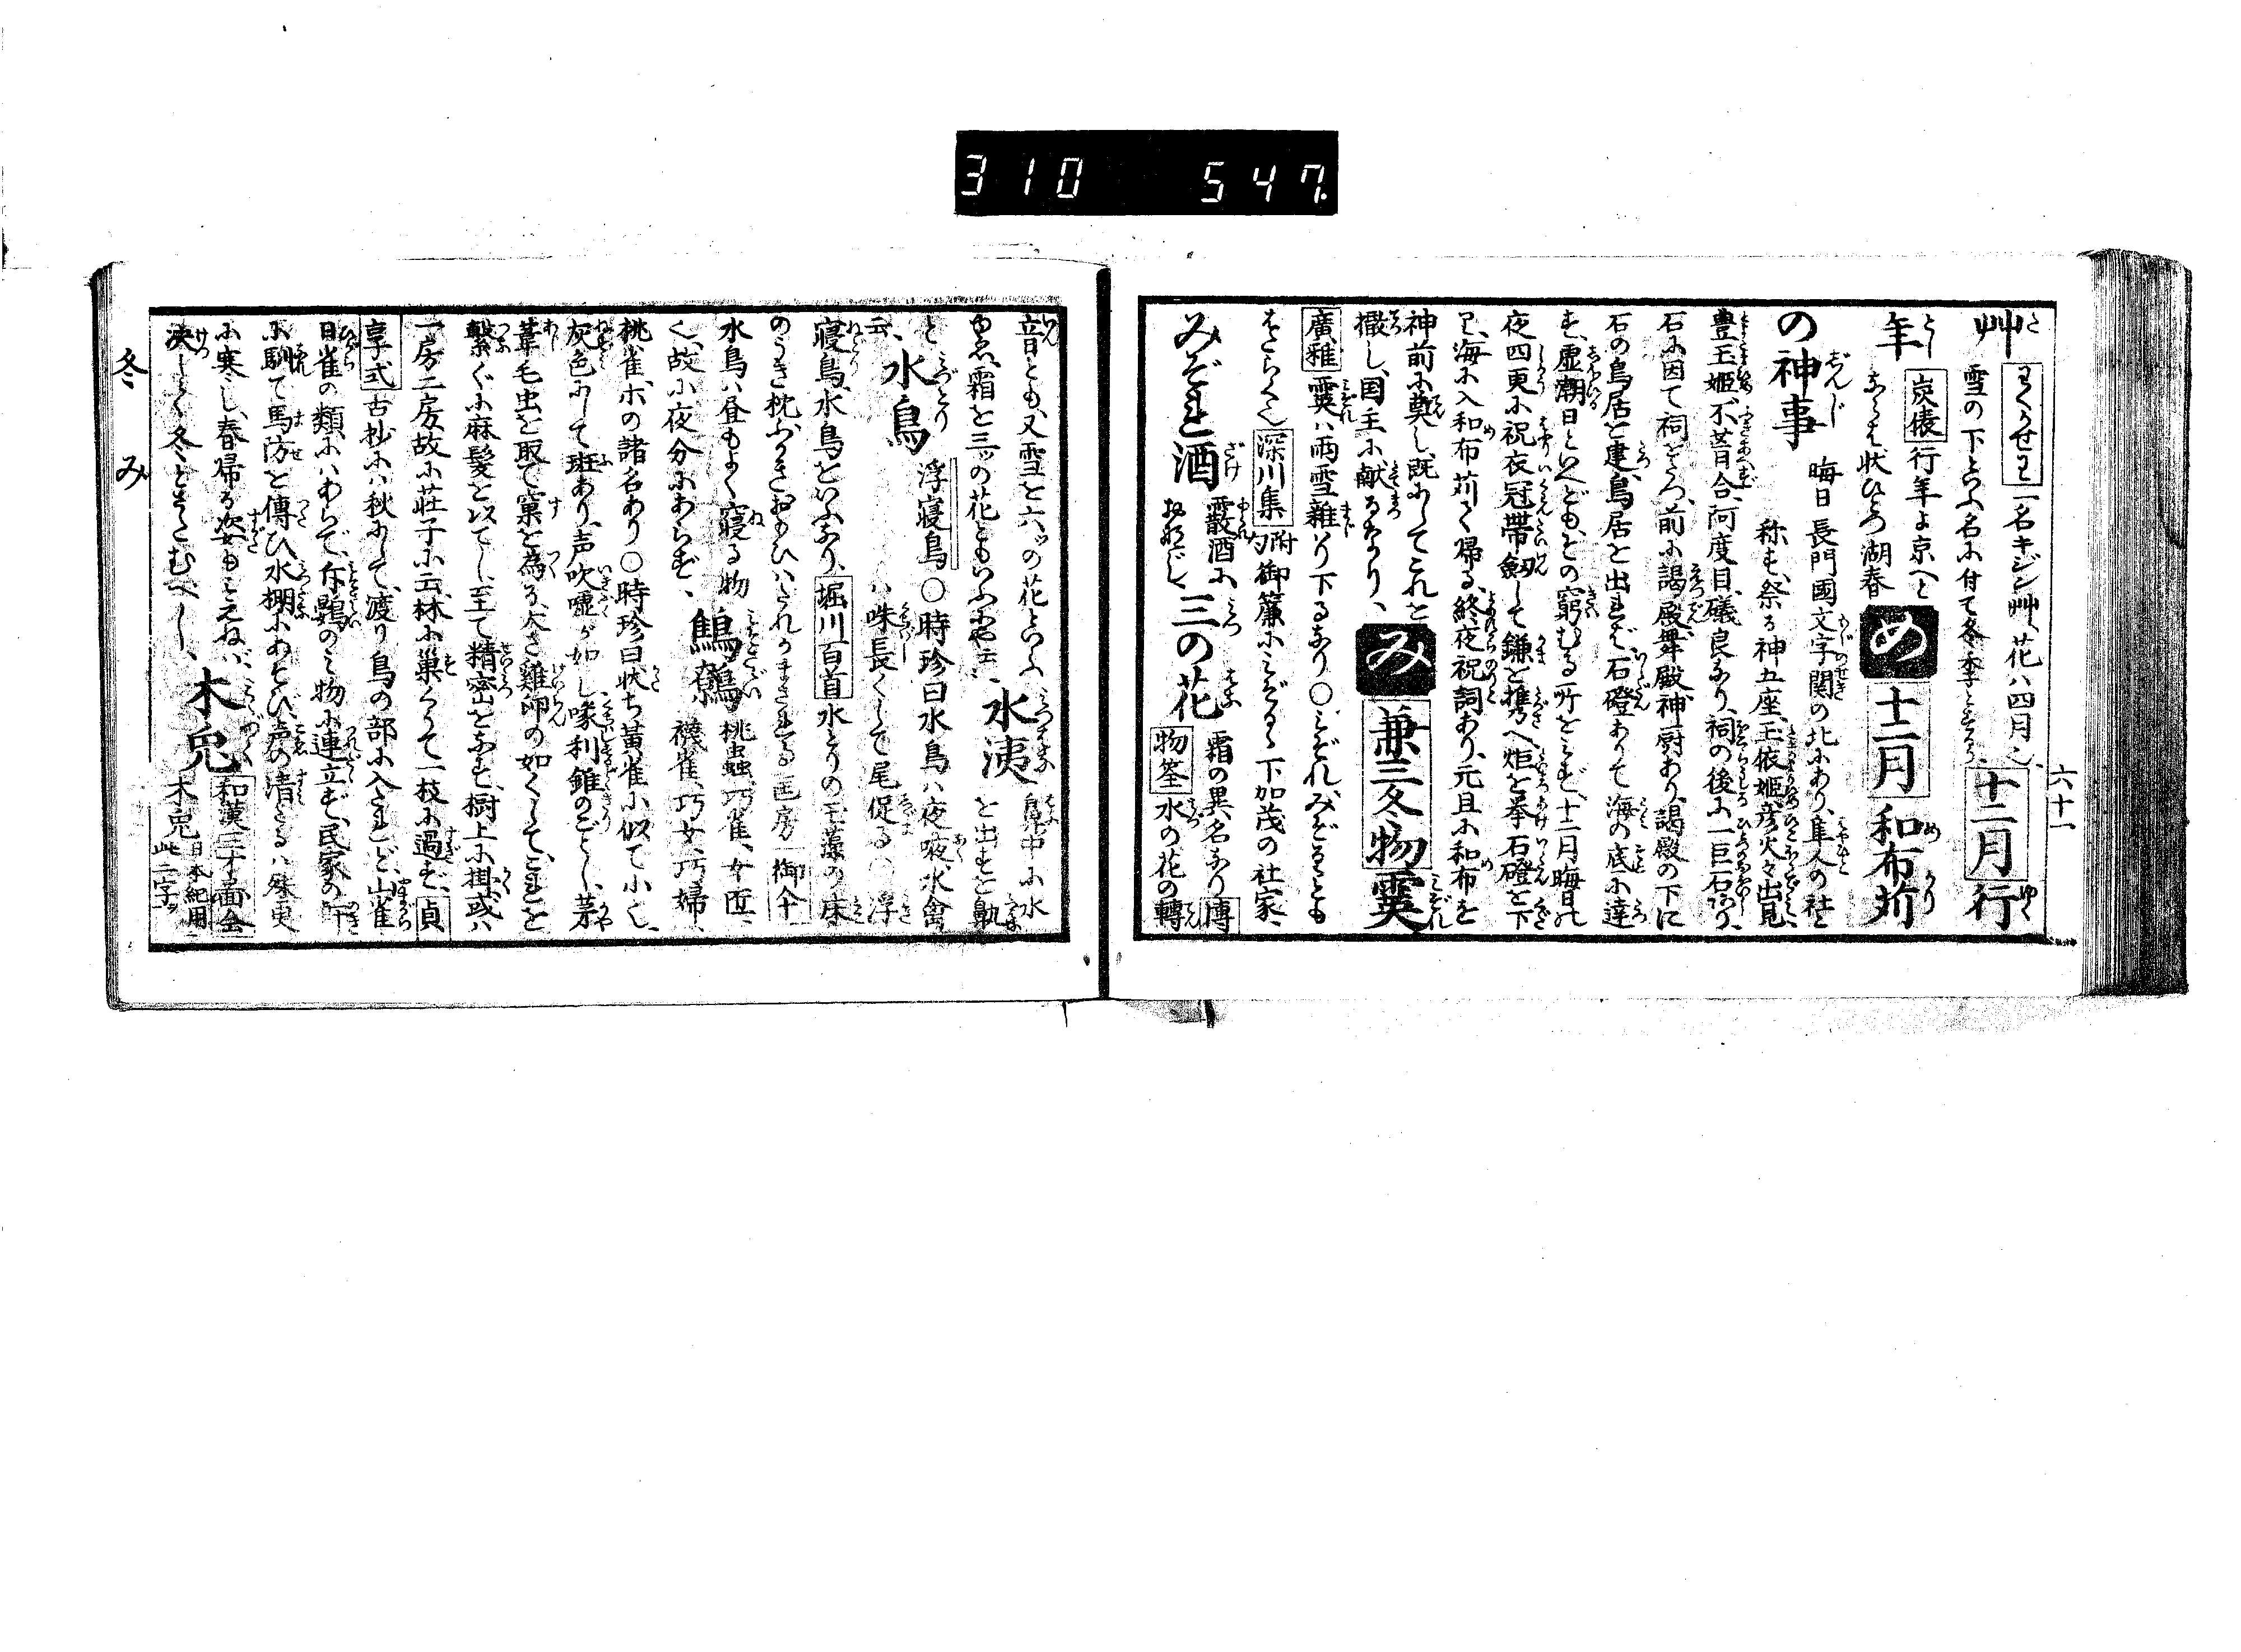 310 547
六十一
艸 わくらせわ 一名キジン艸花ハ四月也、
雪の下といふ名に付て冬季とせり 十二月 行
年 炭俵 行年よ京へと
状ひとつ 湖春 め 十二月 和布苅
の神事 晦日 長門國文字関の北にあり、隼人の社と
称す、祭る神五座、玉依姫、彦火々出見、
豊玉姫、不葺合、阿度目、礒良なり、祠の後に一巨石あり、
石に因て祠をたつ、前に謁殿、舞殿、神厨あり、謁殿の下に
石の鳥居を建、鳥居を出れば、石磴ありて海の底に達
す、虚潮日といへども、その窮むる所をみず、十二月晦日の
夜四更に祝衣冠帯劔して鎌を携へ炬を挙石磴を下
り、海に入和布苅て帰る、終夜祝詞あり、元旦に和布を
神前に奠し、既にしてこれを
撤し、国主に献るなり、 み 兼三冬物 霙
廣雅 霙ハ雨雪雑りて下るなり○みぞれ、みぞるとも
はたらく也 深川集 附句 御簾にみぞるゝ下加茂の社家、
みぞれ酒 霰酒に おなじ、 三の花 霜の異名なり 博
物筌 水の花の轉
音とも、又雪を六ッの花といふ
ゆゑ、霜を三ッの花ともいふにや云云、 水洟 鼻中に水
を出すを鼽
と云、 水鳥 浮寝鳥○時珍曰水鳥ハ夜咬、水禽
ハ咮長くして尾促る○浮
寝鳥、水鳥をいふなり、 堀川百首 水とりの玉藻の床の
のうき枕ふかきおもひハたれかまされる 匡房 御傘
水鳥ハ昼もよく寝る物
く、故に夜分にあらず、 鷦鷯 桃蟲、巧雀、女匠、
襪雀、巧女、巧婦、
桃雀、ホの諸名あり○時珍曰状ち黄雀に似て小く、
灰色にして斑あり、声吹嘘が如し喙利錐のごとし、茅
葦毛虫を取て窠を為る、大さ雞卵の如くして、これを
繋ぐに麻髪を以てし、至て精密となす、樹上に掛、或ハ
一房二房、故に荘子に云、林に巣くうて一枝に過ず、 貞
享式 古抄にハ秋にして、渡り鳥の部に入れど、山雀
日雀の類にハあらで、斥鷃のミ物に連立ず、民家の軒
に馴て馬防を傳ひ水棚にあそび声の清たるハ殊更
に寒し、春帰る姿もみえねば、 木兎 和漢三才圖会
木兎 日本紀用
此二字ヲ
決して冬とさだむべし、
冬 み